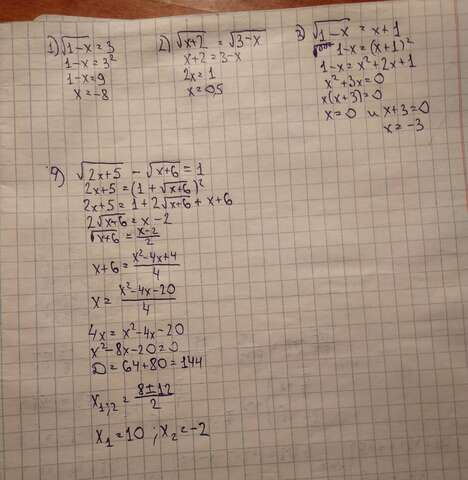 1) √1-x = 3
1-x = 3²
1-x = 9
x = -8
2) √x+2 = √3-x
x+2 = 3-x
2x = 1
x = 0,5
3) √1-x = x+1
1-x = (x+1)²
1-x = x²+2x+1
x²+3x=0
x(x+3)=0
x=0 и x+3=0
x = -3
4) √2x+5 - √x+6 = 1
2x+5 = (1+√x+6)²
2x+5 = 1+2√x+6 + x+6
2√x+6 = x-2
√x+6 = x-2/2
x+6 = x²-4x+4/4
x = x²-4x-20/4
4x = x²-4x-20
x²-8x-20=0
D = 64+80 = 144
x₁;₂ = 8±12/2
x₁=10 ; x₂=-2